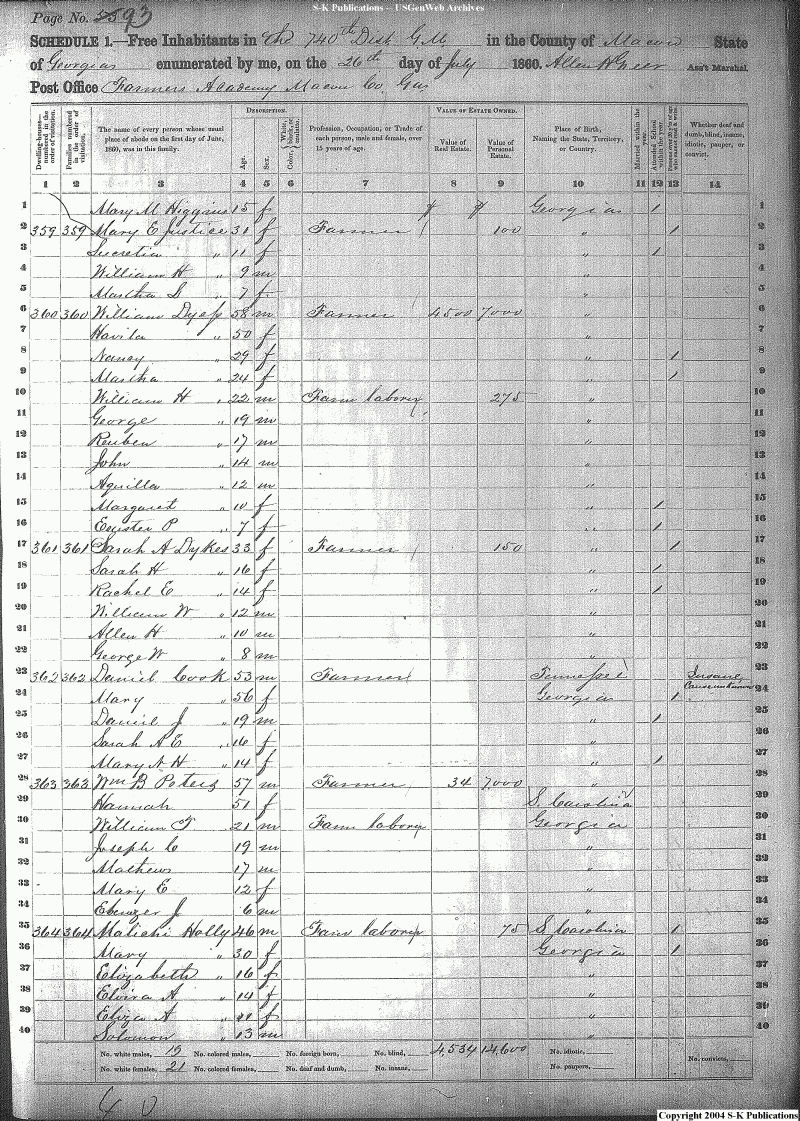 S-K Publications – USGenWeb Archives
Page No. 93
SCHEDULE 1.—Free Inhabitants in The 740th Dist G.M in the County of Macon State
of Georgias enumerated by me, on the 26th day of July 1860. Allen Ass't Marshal.
Post Office Farmers Academy Macon Co. Gas
Dwelling-houses—numbered in the order of visitation.
Families numbered in the order of visitation.
The name of every person whose usual place of abode on the first day of June, 1860, was in this family.
DESCRIPTION.
Age.
Sex.
Color, White, black, or mulatto.
Profession, Occupation, or Trade of each person, male and female, over 15 years of age.
VALUE OF ESTATE OWNED.
Value of Real Estate.
Value of Personal Estate.
Place of Birth, Naming the State, Territory, or Country.
Married within the year.
Attended School within the year.
Persons over 20 y'rs of age who cannot read & write.
Whether deaf and dumb, blind, insane, idiotic, pauper, or convict.
1 2 3 4 5 6 7 8 9 10 11 12 13 14
1 Mary M Higgins 15 f Georgias 1 1
2 359 359 Mary E Justice 31 f Farmer 100 " 1 2
3 Lucretia " 11 f " 1 3
4 William H " 9 m " 4
5 Martha S " 7 f " 5
6 360 360 William Dyess 58 m Farmer 4500 7000 " 6
7 Havila " 50 f " 7
8 Nancy " 29 f " 1 8
9 Martha " 24 f " 1 9
10 William H " 22 m Farm laborer 275 " 10
11 George " 19 m " 11
12 Reuben " 17 m " 12
13 John " 14 m " 13
14 Aquilla " 12 m " 14
15 Margaret " 10 f " 1 15
16 P " 7 f " 1 16
17 361 361 Sarah A Dykes 33 f Farmer 150 " 1 17
18 Sarah H " 16 f " 1 18
19 Rachel E " 14 f " 1 19
20 William W " 12 m " 20
21 Allen H " 10 m " 21
22 George W " 8 m " 22
23 362 362 Daniel Cook 53 m Farmer Tennessee Insane, Cause unknown 23
24 Mary " 56 f Georgia 1 24
25 Daniel J " 19 m " 1 25
26 Sarah A E " 16 f " 26
27 Mary A H " 14 f " 1 27
28 363 363 Wm B Peters 57 m Farmer 34 7000 " 28
29 Hannah 51 f S. Carolina 29
30 William T " 21 m Farm laborer Georgia 30
31 Joseph C 19 m " 31
32 Mathews 17 m " 32
33 Mary E 12 f " 33
34 Ebenezer J 6 m " 34
35 364 364 Malichi Holly 46 m Farm laborer 75 S Carolina 1 35
36 Mary " 30 f Georgia 1 36
37 Elizabeth " 16 f " 37
38 Elvira A " 14 f " 38
39 Eliza A " 11 f " 39
40 Solomon " 13 m " 40
No. white males, 19 No. colored males, No. foreign born, No. blind, 4,534 14,600 No. idiotic, No. convicts,
No. white females, 21 No. colored females, No. deaf and dumb, No. insane, No. paupers,
40
Copyright 2004 S-K Publications